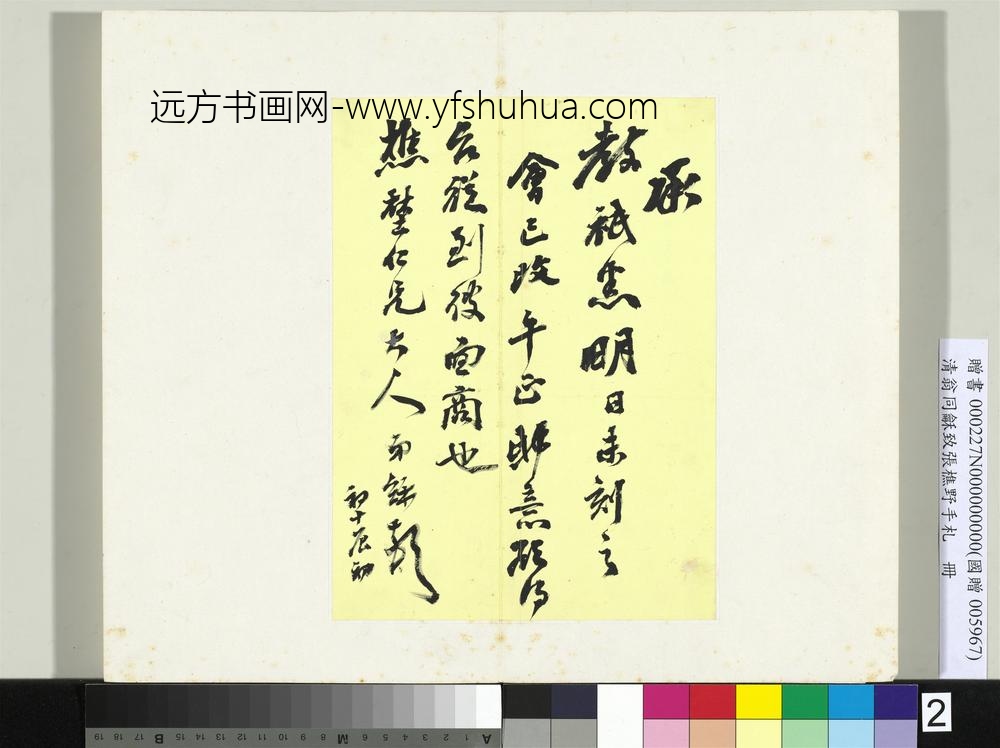 远方书画网-www.yfshuhua.com
承
教祇悉明日未刻之
會已改午正鄙意欲得
台從到彼面商也
樵埜仁兄大人 弟龢頓
初十辰初
贈書 000227N000000000(國贈 005967)
清翁同龢致張樵野手札 冊
19 18 17 16 15 B 14 13 12 11 10 9 8 7 M 6 5 4 3 2 1 A
2